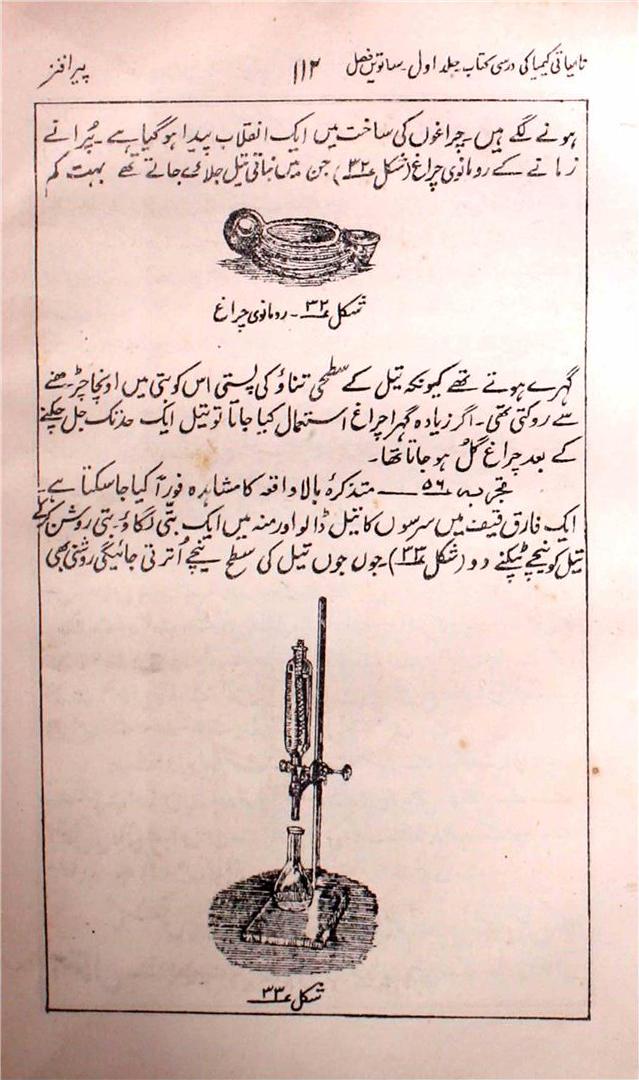 نامیاتی کیمیا کی درسی کتاب جلد اول۔ ساتویں فصل ۱۱۲ پیرافنز
ہونے لگے ہیں۔ چراغوں کی ساخت میں ایک انقلاب پیدا ہو گیا ہے۔ پُرانے
زمانے کے رومانوی چراغ (شکل ۳۲) جن میں نباتی تیل جلائے جاتے تھے بہت کم
شکل ۳۲۔ رومانوی چراغ
گہرے ہوتے تھے کیونکہ تیل کے سطحی تناؤ کی پستی اس کو بتی میں اونچا چڑھنے
سے روکتی تھی۔ اگر زیادہ گہرا چراغ استعمال کیا جاتا تو تیل ایک حد تک جل چکنے
کے بعد چراغ گُل ہو جاتا تھا۔
تجربہ ۵۶ — متذکرۂ بالا واقعہ کا مشاہدہ فوراً کیا جا سکتا ہے۔
ایک فارق قیف میں سرسوں کا تیل ڈالو اور منہ میں ایک بتّی لگاؤ۔ بتی روشن کر کے
تیل کو نیچے ٹپکنے دو (شکل ۳۳)۔ جوں جوں تیل کی سطح نیچے اُترتی جائیگی روشنی بھی
شکل ۳۳